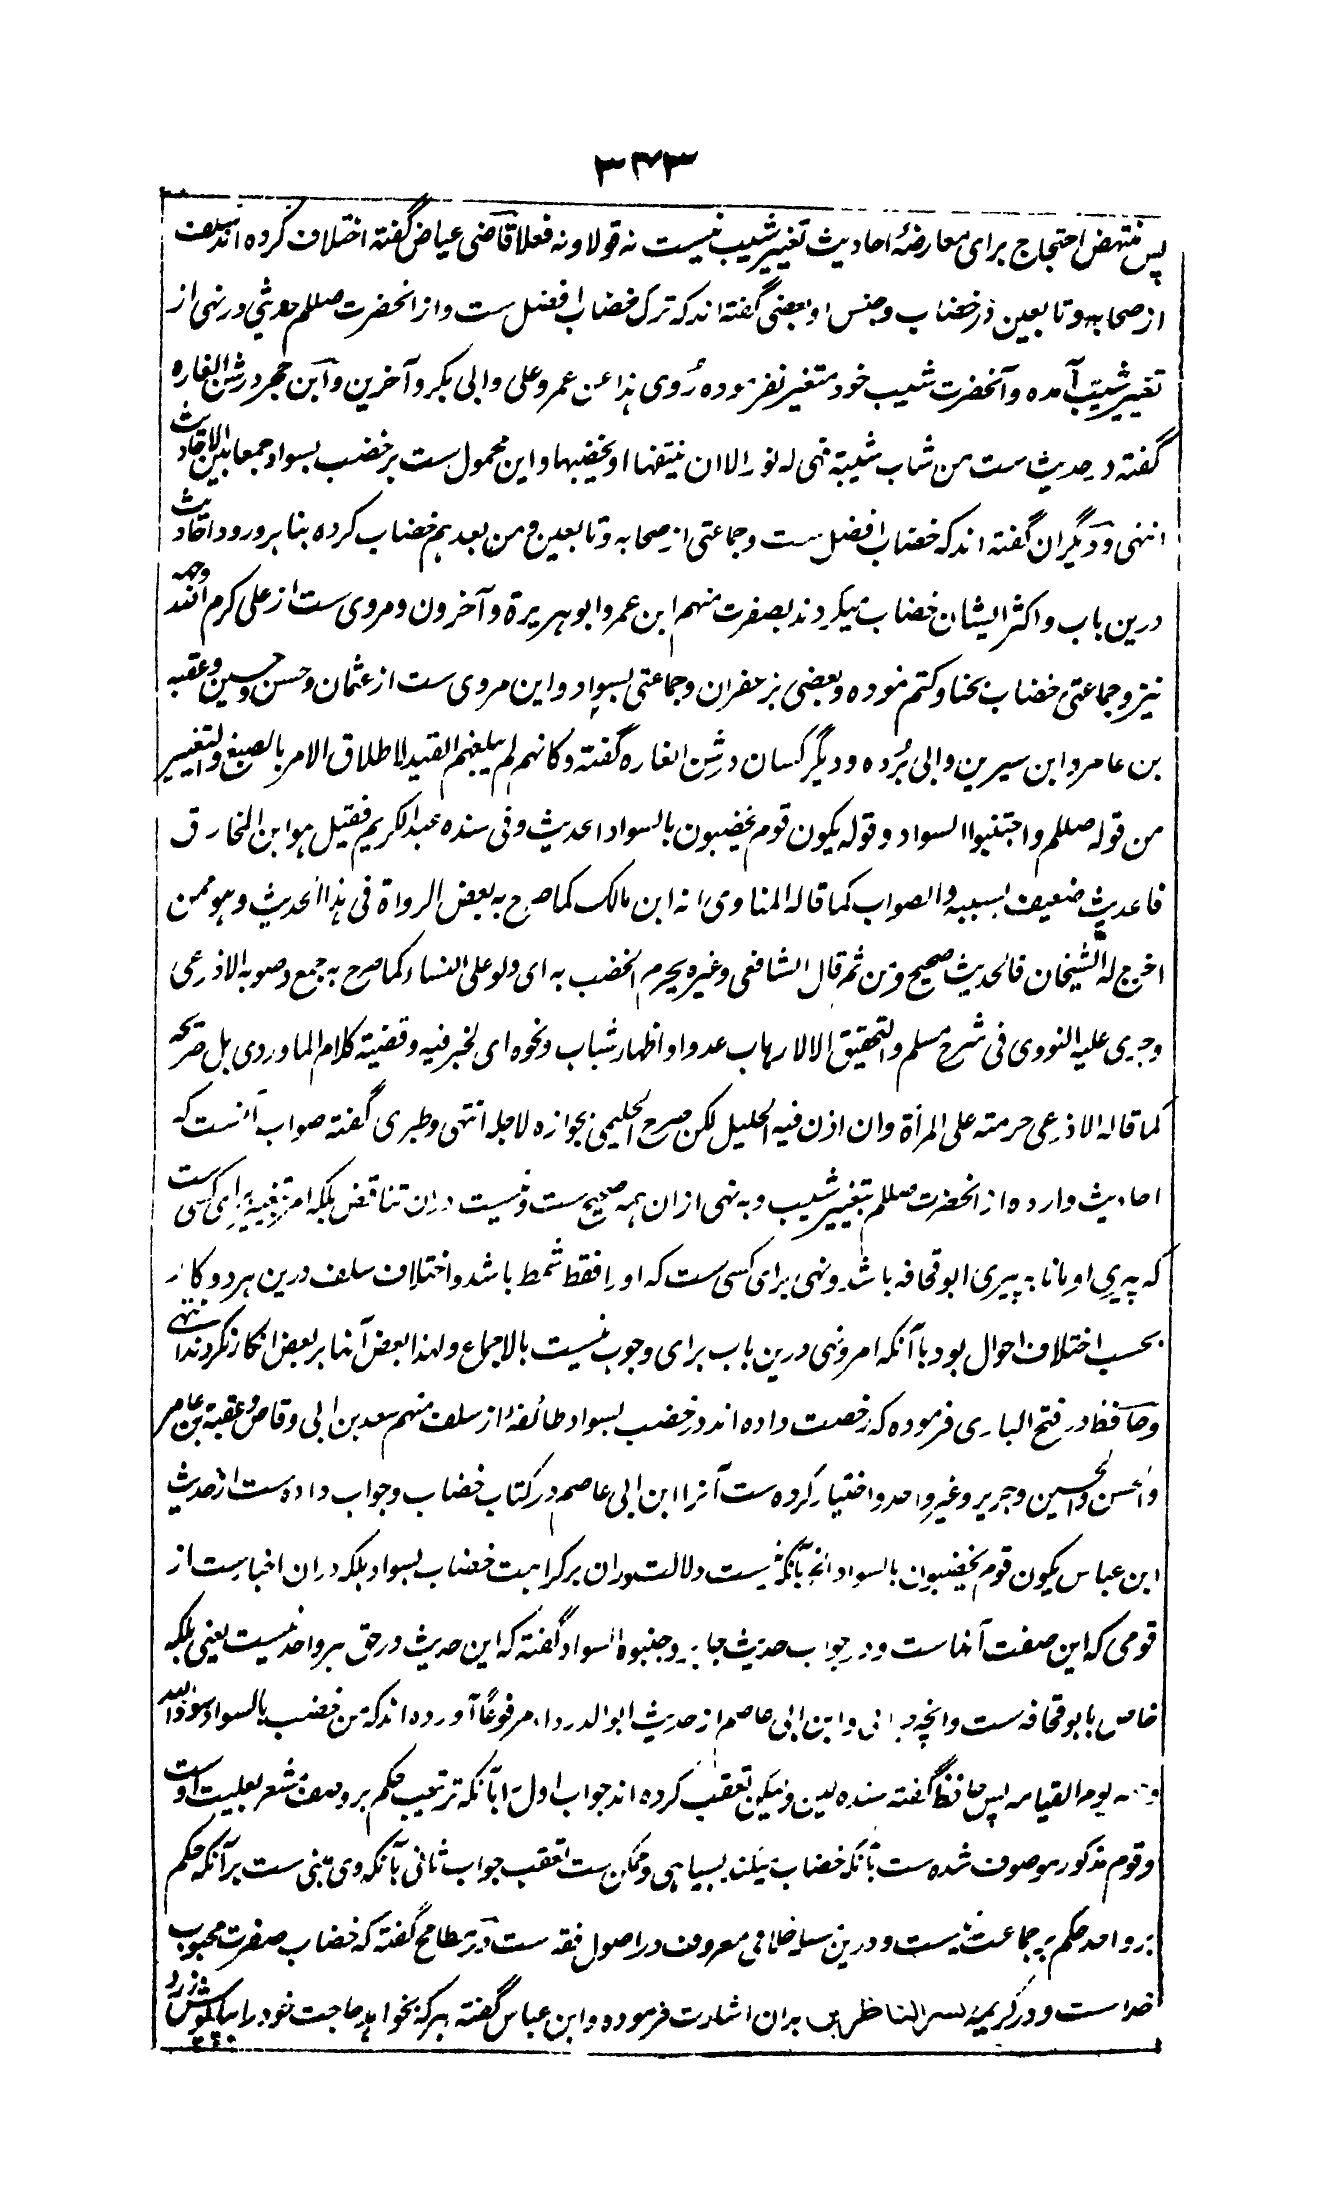 ۳۴۳
پس منتهض احتجاج برای معارضهٔ احادیث تغییر شیب نیست نه قولا و نه فعلا قاضی عیاض گفته اختلاف کرده اند سلف
از صحابه و تابعین در خضاب و جنس او بعضی گفته اند که ترک خضاب افضل ست و از آنحضرت صللم حدیثی در نهی از
تغییر شیب آمده و آنحضرت شیب خود متغیر نفرموده رُوی هذا عن عمر و علی و ابی بکر و آخرین و ابن حجر در شن الغاره
گفته در حدیث ست من شاب شیبة فهی له نور الا ان ینتفها او یخضبها و این محمول ست بر خضب بسواد جمعا بین الاحادیث
انتهی و دیگران گفته اند که خضاب افضل ست و جماعتی از صحابه و تابعین و من بعدهم خضاب کرده بنا بر ورود احادیث
درین باب و اکثر ایشان خضاب میکردند بصفرت منهم ابن عمر و ابو هریرة و آخرون و مروی ست از علی کرم الله وجهه
نیز و جماعتی خضاب بحنا و کتم نموده و بعضی بزعفران و جماعتی بسواد و این مروی ست از عثمان و حسن و حسین و عقبه
بن عامر و ابن سیرین و ابی بُرده و دیگر کسان در شن الغاره گفته و کانهم لم یبلغهم القید لاطلاق الامر بالصبغ و التغییر
من قوله صللم و اجتنبوا السواد و قوله یکون قوم یخضبون بالسواد الحدیث و فی سنده عبد الکریم فقیل هو ابن المخارق
فالحدیث ضعیف بسببه و الصواب کما قاله المناوی انه ابن مالک کما صرح به بعض الرواة فی هذا الحدیث و هو ممن
اخرج له الشیخان فالحدیث صحیح و من ثم قال الشافعی و غیره یحرم الخضب به ای ولو علی النساء کما صرح به جمع و صوبه الاذرعی
و جری علیه النووی فی شرح مسلم و التحقیق الا لارهاب عدو او اظهار شباب و نحوه ای لخبر فیه و قضیة کلام الماوردی بل صریحه
کما قاله الاذرعی حرمته علی المرأة و ان اذن فیه الحلیل لکن صرح الحلیمی بجوازه لاجله انتهی و طبری گفته صواب آنست که
احادیث وارده از آنحضرت صللم بتغییر شیب و به نهی ازان همه صحیح ست و نیست دران تناقض بلکه امر بتغییر برای کسی ست
که پیری او مانا به پیری ابو قحافه باشد و نهی برای کسی ست که او را فقط شمط باشد و اختلاف سلف درین هر دو کار
بحسب اختلاف احوال بود با آنکه امر و نهی درین باب برای وجوب نیست بالاجماع و لهذا بعض آنها بر بعض انکار نکردند انتهی
و حافظ در فتح الباری فرموده که رخصت داده اند در خضب بسواد طائفهٔ از سلف منهم سعد بن ابی وقاص و عقبة بن عامر
و الحسن و الحسین و جریر و غیر واحد و اختیار کرده ست آنرا ابن ابی عاصم در کتاب خضاب و جواب داده ست از حدیث
ابن عباس یکون قوم یخضبون بالسواد الخ بآنکه نیست دلالت دران بر کراهت خضاب بسواد بلکه دران اخبارست از
قومی که این صفت آنهاست و در جواب حدیث جابر و جنبوه السواد گفته که این حدیث در حق هر واحد نیست یعنی بلکه
خاص بابو قحافه ست و انچه طبرانی و ابن ابی عاصم از حدیث ابو الدرداء مرفوعًا آورده اند که من خضب بالسواد سود الله
وجهه یوم القیامه پس حافظ گفته سنده لین و لیکن تعقب کرده اند جواب اول را بآنکه ترتیب حکم بر وصف مشعر بعلیت اوست
و قوم مذکور موصوف شده ست بآنکه خضاب میکند بسیاهی و ممکن ست تعقب جواب ثانی بآنکه وی مبنی ست بر آنکه حکم
بر واحد حکم بر جماعت نیست و درین مسئله خلافی معروف در اصول فقه ست در مطامح گفته که خضاب صفرت محبوب
خداست و در کریمهٔ تسر الناظرین بدان اشارت فرموده و ابن عباس گفته هر که بخواهد حاجت خود را بپاپوش زرد